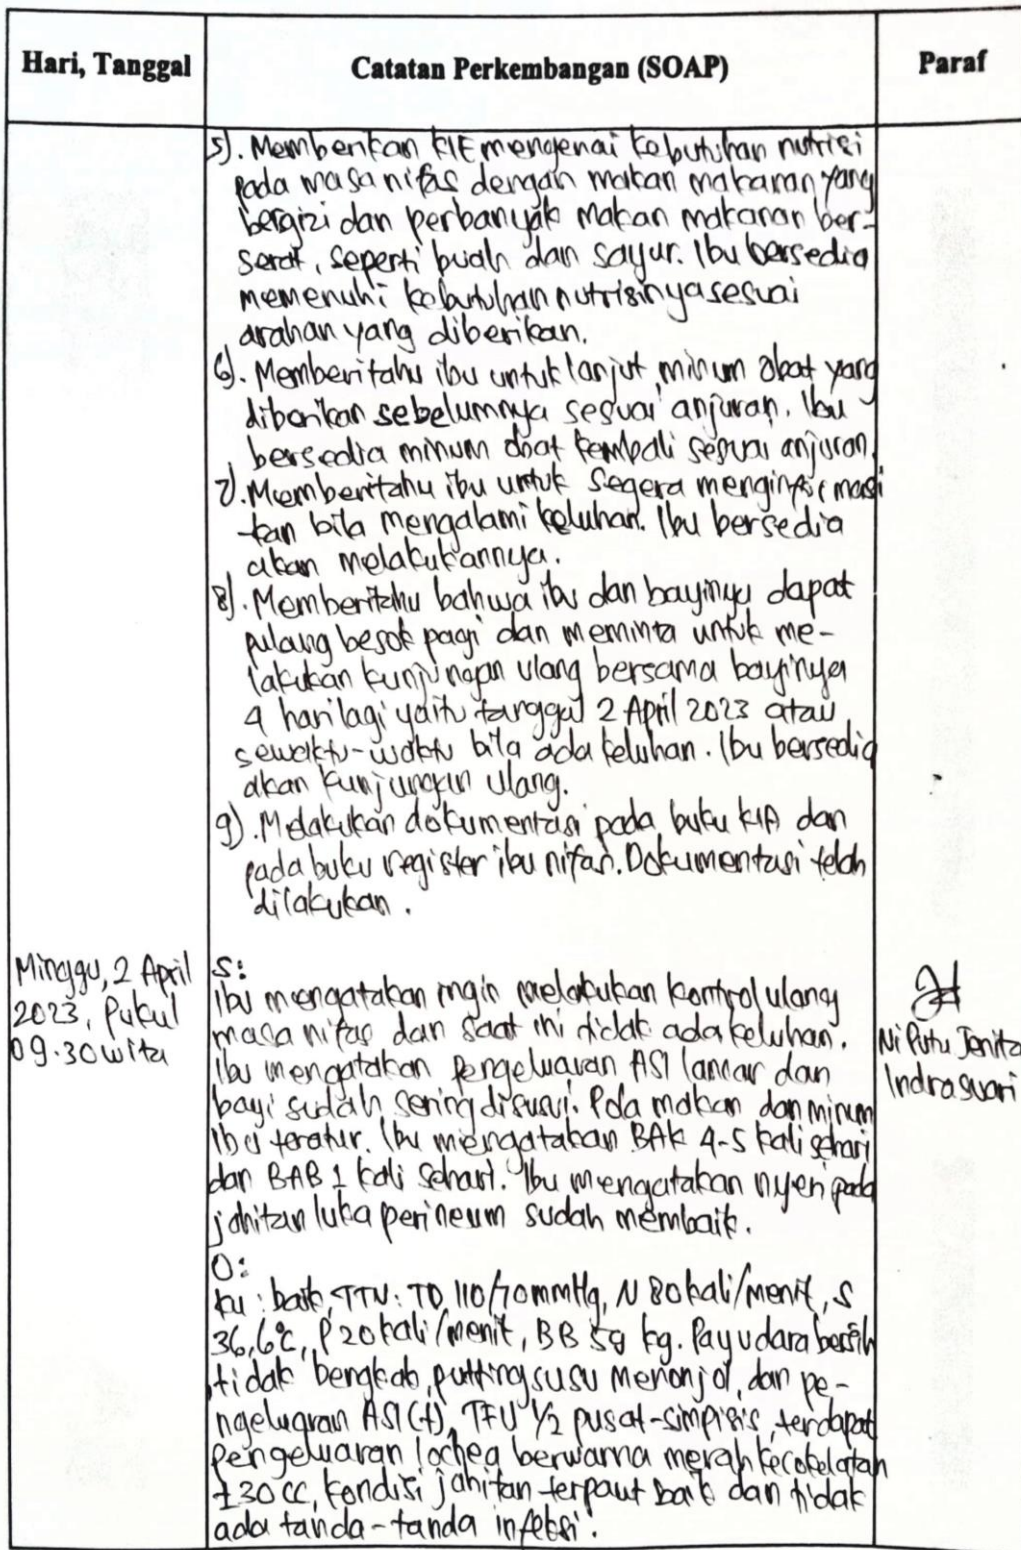 Hari, Tanggal
Catatan Perkembangan (SOAP)
Paraf
5). Memberikan KIE mengenai kebutuhan nutrisi
pada masa nifas dengan makan makanan yang
bergizi dan perbanyak makan makanan ber-
serat, seperti buah dan sayur. Ibu bersedia
memenuhi kebutuhan nutrisinya sesuai
arahan yang diberikan.
6). Memberitahu ibu untuk lanjut minum obat yang
diberikan sebelumnya sesuai anjuran. Ibu
bersedia minum obat kembali sesuai anjuran.
7). Memberitahu ibu untuk segera menginformasi
kan bila mengalami keluhan. Ibu bersedia
akan melakukannya.
8). Memberitahu bahwa ibu dan bayinya dapat
pulang besok pagi dan meminta untuk me-
lakukan kunjungan ulang bersama bayinya
4 hari lagi yaitu tanggal 2 April 2023 atau
sewaktu-waktu bila ada keluhan. Ibu bersedia
akan kunjungan ulang.
9). Melakukan dokumentasi pada buku KIA dan
pada buku register ibu nifas. Dokumentasi telah
dilakukan.
Minggu, 2 April
2023, Pukul
09.30 wita
S:
Ibu mengatakan ingin melakukan kontrol ulang
masa nifas dan saat ini tidak ada keluhan.
Ibu mengatakan pengeluaran ASI lancar dan
bayi sudah sering disusui. Pola makan dan minum
Ibu teratur. Ibu mengatakan BAK 4-5 kali sehari
dan BAB 1 kali sehari. Ibu mengatakan nyeri pada
jahitan luka perineum sudah membaik.
O:
KU : baik, TTV : TD 110/70 mmHg, N 80 kali/menit, S
36,6°C, P 20 kali/menit, BB 58 kg. Payudara bersih
tidak bengkak, putting susu menonjol, dan pe-
ngeluaran ASI (+), TFU 1/2 pusat-simpisis, terdapat
pengeluaran lochea berwarna merah kecokelatan
±30 cc, kondisi jahitan terpaut baik dan tidak
ada tanda-tanda infeksi.
Ni Putu Jenita
Indraswari